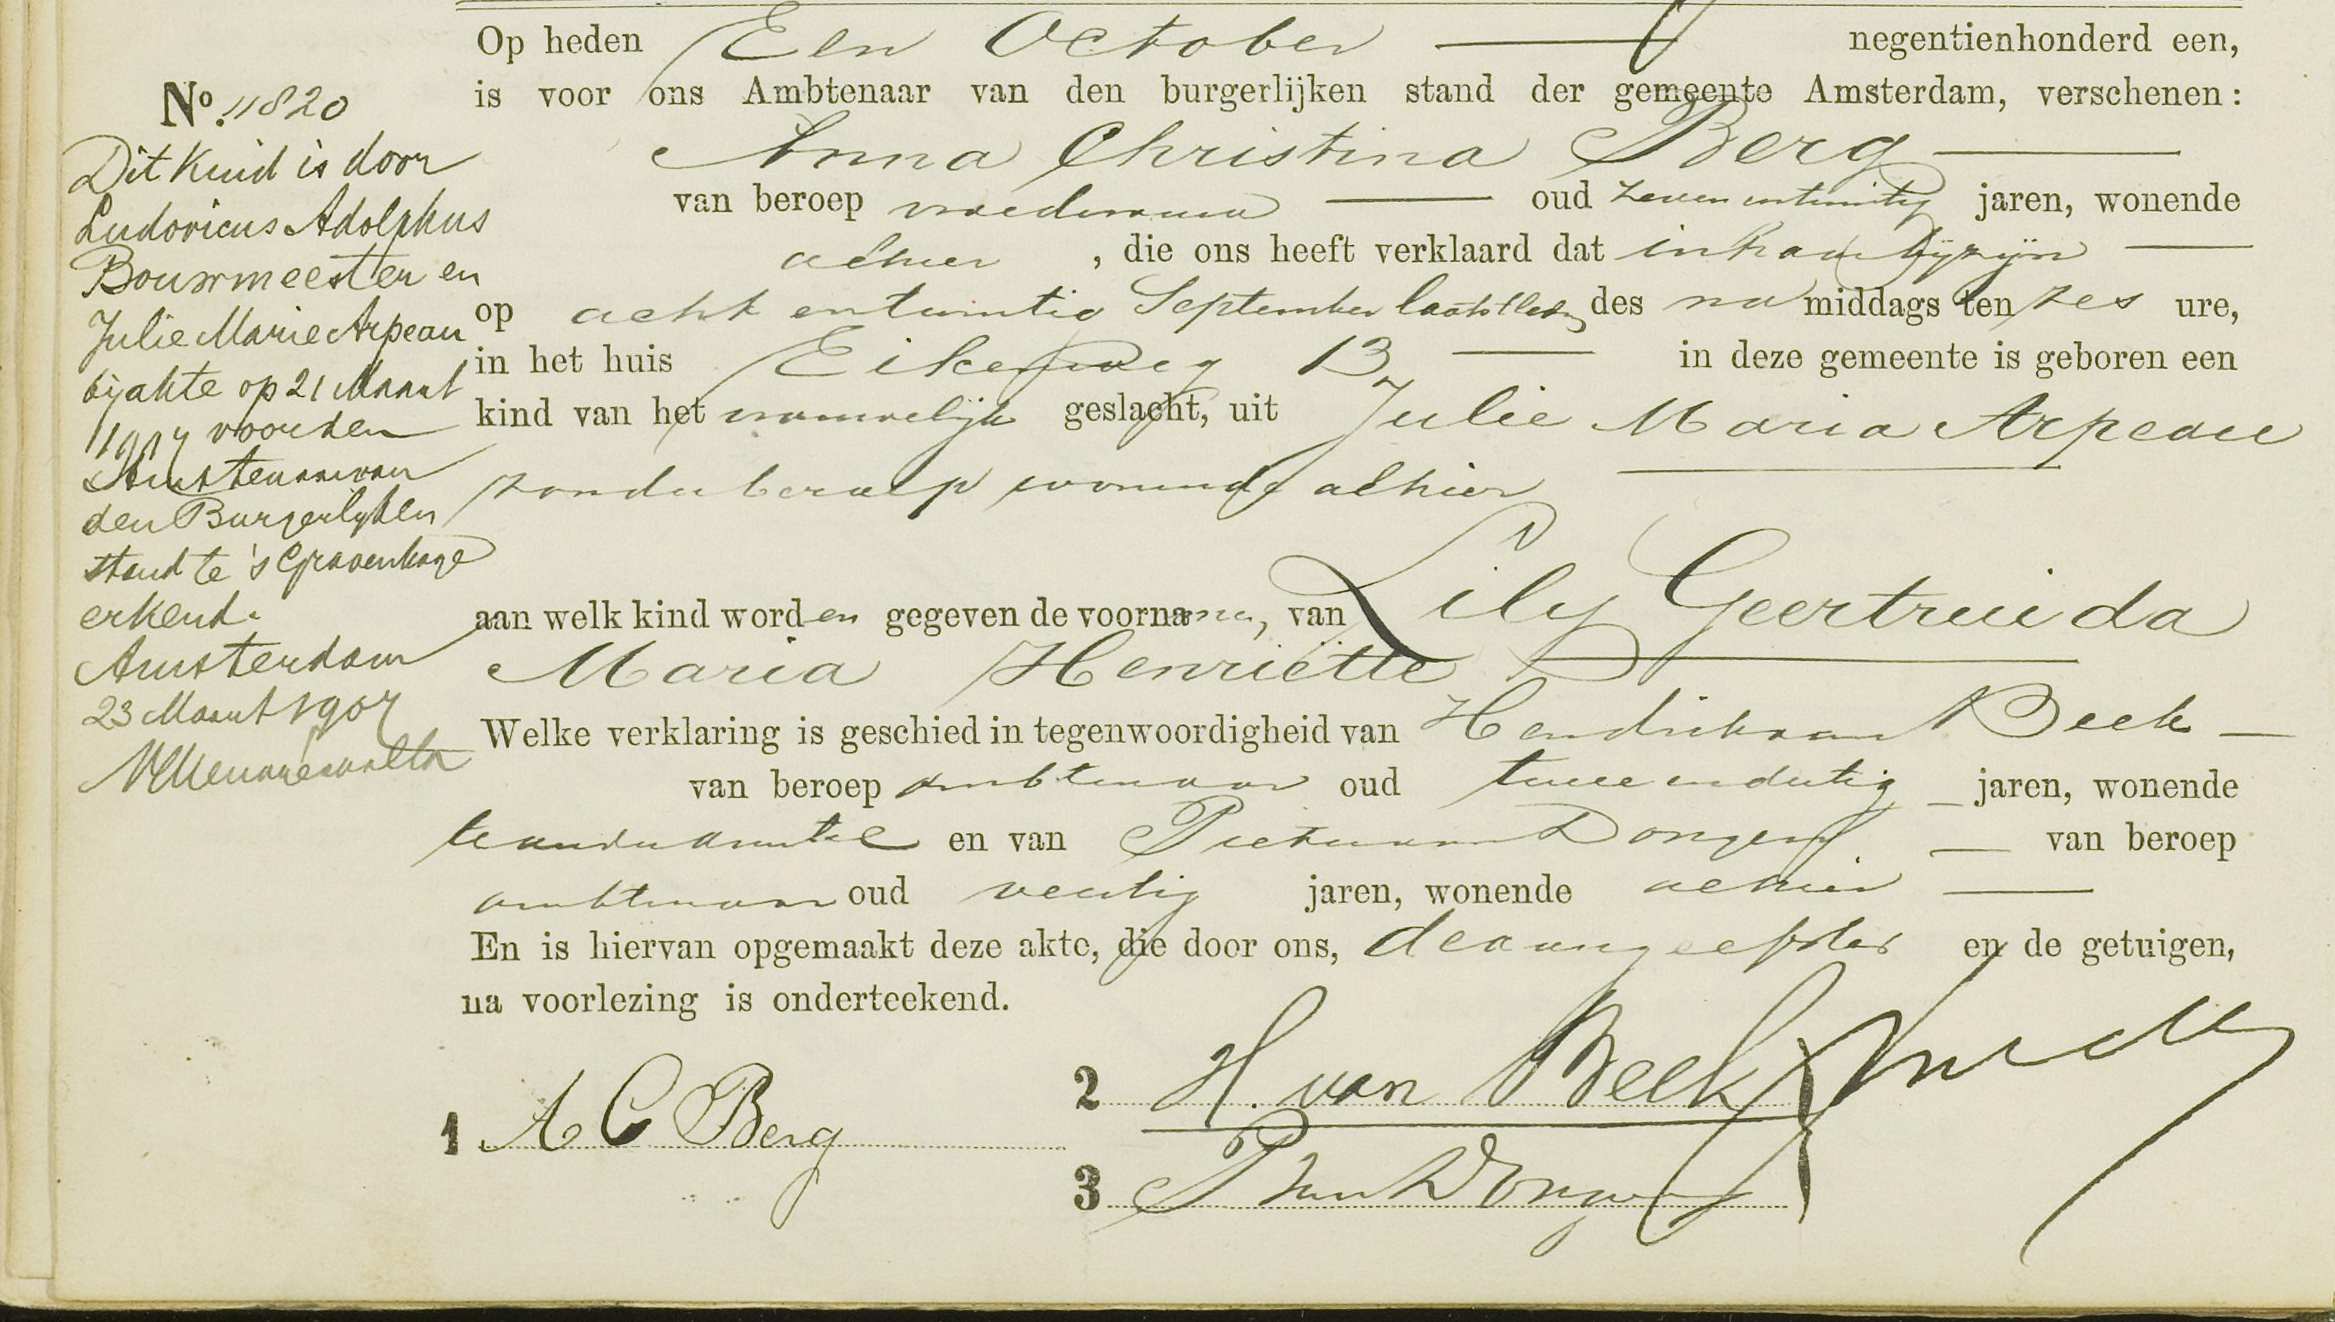 Op heden Een October negentienhonderd een,
is voor ons Ambtenaar van den burgerlijken stand der gemeente Amsterdam, verschenen:
Anna Christina Berg
van beroep vroedvrouw oud zeven en twintig jaren, wonende
alhier, die ons heeft verklaard dat in haar bijzijn
op acht en twintig September laatstleden des na middags ten zes ure,
in het huis Eikenweg 13 in deze gemeente is geboren een
kind van het vrouwelijk geslacht, uit Julie Maria Arpeau
zonder beroep wonende alhier
aan welk kind worden gegeven de voornamen, van Lily Geertruida
Maria Henriëtte
Welke verklaring is geschied in tegenwoordigheid van Hendrik van Beek
van beroep ambtenaar oud twee en dertig jaren, wonende
te en van Pieter van Dongen van beroep
ambtenaar oud veertig jaren, wonende alhier
En is hiervan opgemaakt deze akte, die door ons, de aangeefster en de getuigen,
na voorlezing is onderteekend.
1 A C Berg
2 H. van Beek
3 P van Dongen
No. 11820
Dit kind is door
Ludovicus Adolphus
Bouwmeester en
Julie Marie Arpeau
bij akte op 21 Maart
1907 voor den
Ambtenaar van
den Burgerlyken
stand te 's Gravenhage
erkend.
Amsterdam
23 Maart 1907